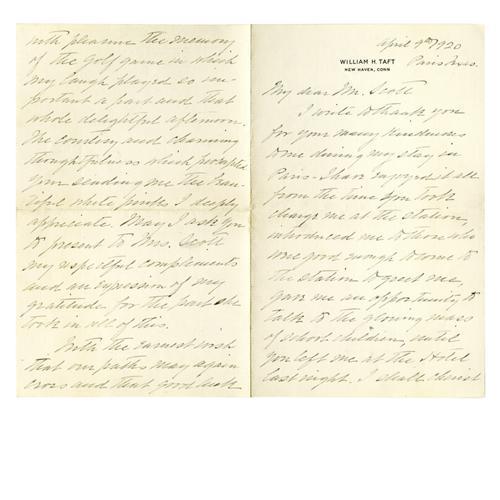 April 9th 1920
WILLIAM H. TAFT
NEW HAVEN, CONN
Paris
My dear Mr. Scott
I write to thank you
for your many kindnesses
to me during my stay in
Paris. I have enjoyed it all
from the time you took
charge me at the station,
introduced me to those who
were good enough to come to
the station to greet me,
gave me an opportunity to
talk to the glowing mass
of school children, until
you left me at the Hotel
last night. I shall cherish
with pleasure the memory
of the golf game in which
my laugh played so im-
portant a part and that
whole delightful afternoon.
The courtesy and charming
thoughtfulness which prompted
your sending me the beau-
tiful white pinks I deeply
appreciate. May I ask you
to present to Mrs. Scott
my respectful complements
and an expression of my
gratitude for the part she
took in all of this.
With the earnest wish
that our paths may again
cross and that good luck